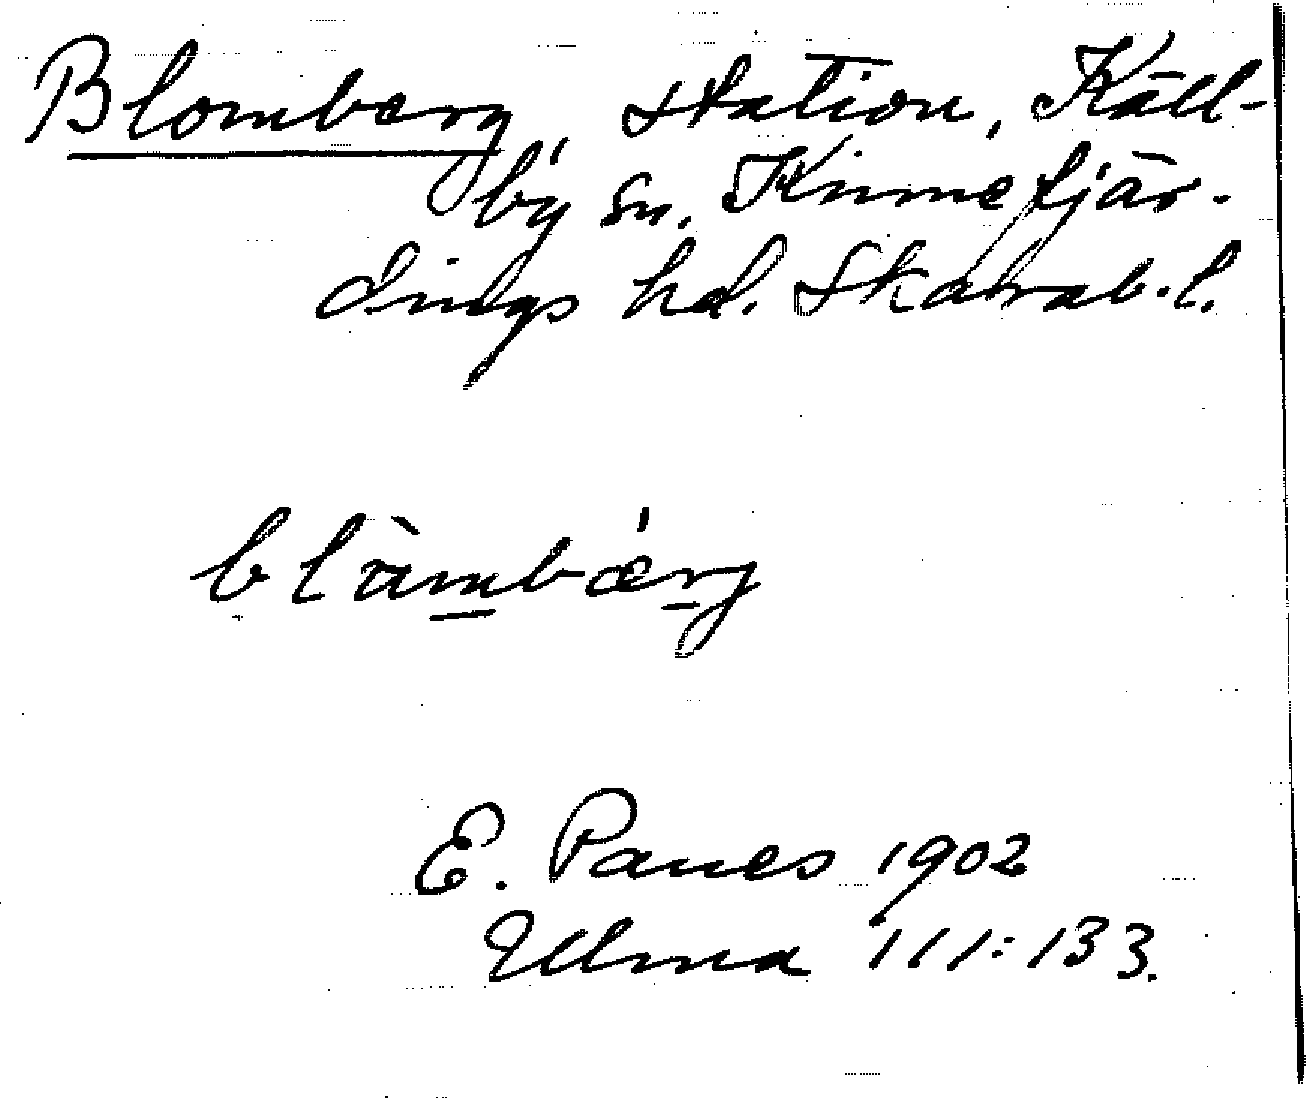 Blomberg, station, Käll-
by sn. Kinnefjär-
dings hd. Skarab.l.
blàmbǽrg
E. Panes 1902
Ulma 111:133.